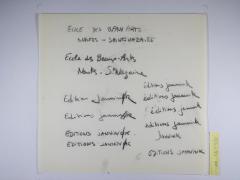 ECOLE DES BEAUX-ARTS
NANTES - SAINT-NAZAIRE
Ecole des Beaux-Arts
Nantes - St Nazaire
Edition Jannink éditions jannink
éditions jannink
Edition Jannink éditions jannink
Editions Jannink éditions jannink
EDITIONS JANNINK JANNINK
EDITIONS JANNINK
EDITIONS JANNINK